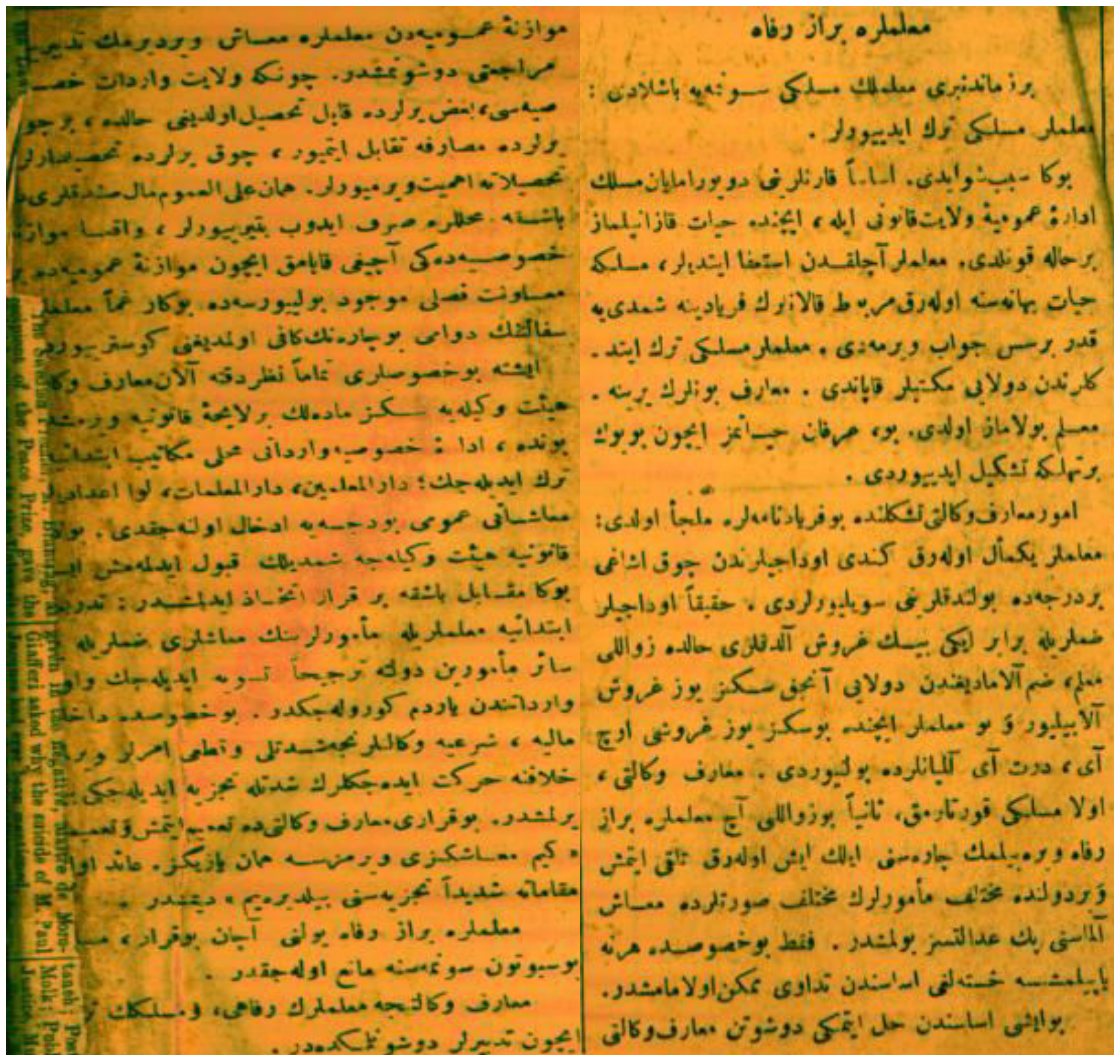 معلملره براز رفاه
برزماندنبری معلملك مسلكی سونمه‌يه باشلادی :
معلملر مسلكی ترك ايدييورلر .
بوكا سبب شو ايدی. اساساً قارنلرينی دويورامايان مسلك
ادارۀ عموميۀ ولايت قانونی ايله ، ايچنده حيات قازانيلماز
برحاله قونلدی. معلملر آچلقدن استعفا ايتديلر، مسلكه
حيات بهاسنه اوله‌رق مربوط قالانلرك فريادينه شمدی‌يه
قدر برسس جواب ويرمه‌دی . معلملر مسلكی ترك ايتد .
كلرندن دولايی مكتبلر قاپاندی . معارف بونلرك يرينه .
معلم بولاماز اولدی. بو، عرفان حياتمز ايچون بويوك
برتهلكه تشكيل ايدييوردی .
امور معارف وكالتی تشكلنده بوفريادنامه‌لره ملجأ اولدی:
معلملر يكمآل اوله‌رق كندی اوداجيلرندن چوق اشاغی
بردرجه‌ده بولندقلرينی سويلييورلردی . حقيقاً اوداجيلر
ضملريله برابر ايكی بيك غروش آلدقلری حالده زواللی
معلم، ضم آلامديغندن دولايی آنجق سكز يوز غروش
آلابيليور و بو معلملر ايچنده بوسكز يوز غروشی اوچ
آی ، درت آی آلميانلرده بولنيوردی . معارف وكالتی ،
اولا مسلكی قورتارمق، ثانياً بوزواللی آچ معلملره براز
رفاه ويره‌بيلمك چاره‌سنی ايلك ايش اوله‌رق تلقی ايتمش
و بردولتده مختلف مأمورلرك مختلف صورتلرده معاش
آلماسنی پك عدالتسز بولمشدر . فقط بوخصوصده هرنه
ياپيلمشسه خسته‌لغی اساسندن تداوی ممكن اولامامشدر.
بوايشی اساسندن حل ايتمكی دوشونن معارف وكالتی
موازنۀ عموميه‌دن معلملره معاش ويرديرمك تدبيرينه
مراجعتی دوشونمشدر. چونكه ولايت واردات خصـ
صيه‌سی، بعض يرلرده قابل تحصيل اولديغی حالده ،
يرلرده مصارفه تقابل ايتميور ، چوق يرلرده تحصيلدارلر
تحصيلاته اهميت ويرميورلر. همان علی العموم مال صندقلری
باشقه محللره صرف ايدوب بيتيرييورلر ، واقعا موازنۀ
خصوصيه‌ده‌كی آچيغی قاپامق ايچون موازنۀ عموميه‌ده بر
معاونت فصلی موجود بولنيورسه‌ده بوكار غماً معلملر
سفالتنك دوامی بوچاره‌نك كافی اولمديغنی كوسترييوردی
ايشته بوخصوصلری تماماً نظردقته آلان معارف وكا
هيئت وكيله‌يه سكز ماده‌لك برلايحۀ قانونيه ويرمش
بونده ، ادارۀ خصوصيه وارداتی محلی مكاتب ابتدائيه
ترك ايديله‌جك؛ دارالمعلمين، دارالمعلمات، لوا اعداديلر
معاشاتی عمومی بودجه‌يه ادخال اولنه‌جقدی . بولا
قانونيه هيئت وكيله‌جه شمديلك قبول ايدلمه‌مش
بوكا مقابل باشقه بر قرار اتخاذ ايدلمشدر :
ابتدائيه معلملريله مأمورلرينك معاشلری ضملريله
سائر مأمورين دولته ترجيحاً تسويه ايديله‌جك
وارداتندن ياردم كوروله‌جكدر . بوخصوصده داخليه
ماليه ، شرعيه وكالتلرنجه شدتلی وقطعی امرلر وير
خلافنه حركت ايده‌جكلرك شدتله تجزيه ايديله‌جكی
يرلمشدر. بوقراری معارف وكالتی ده تعميم ايتمش و تعميـ
« كيم معاشكزی ويرمزسه همان يازيكز. عائد اولا
مقاماته شديداً تجزيه‌سنی بيلديره‌يم » ديمشدر .
معلملره براز رفاه يولنی آچان بوقرار ،
بوسبوتون سونمه‌سنه مانع اوله‌جقدر .
معارف وكالتنجه معلملرك رفاهی ، ومسلكك
ايچون تدبيرلر دوشونلمكده‌در .
gave the
Giafferi asked why the suicide of M. Paul
members of the Peace Prize,